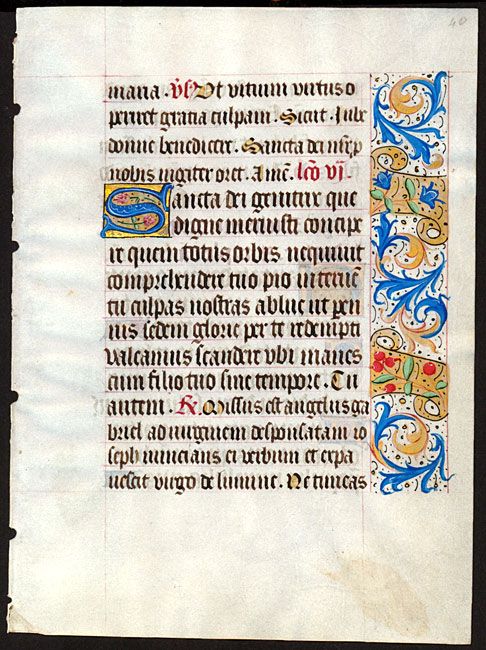 40
maria . v̄s. Ut vitium virtus o
periret gratia culpam. Sicut. Iube
domne benedicere. Sancta dei
nobis iugiter oret. Amē. lc̄o vj.
Sancta dei genitrix que
digne meruisti concipe
re quem totus orbis nequiuit
comprehendere tuo pio interuē
tu culpas nostras ablue ut peren
nis sedem glorie per te redempti
valeamus scandere vbi manes
cum filio tuo sine tempore. Tu
autem. R. Missus est angelus ga
briel ad uirginem desponsatam io
seph nuncians ei verbum et expa
uescit virgo de lumine. Ne timeas